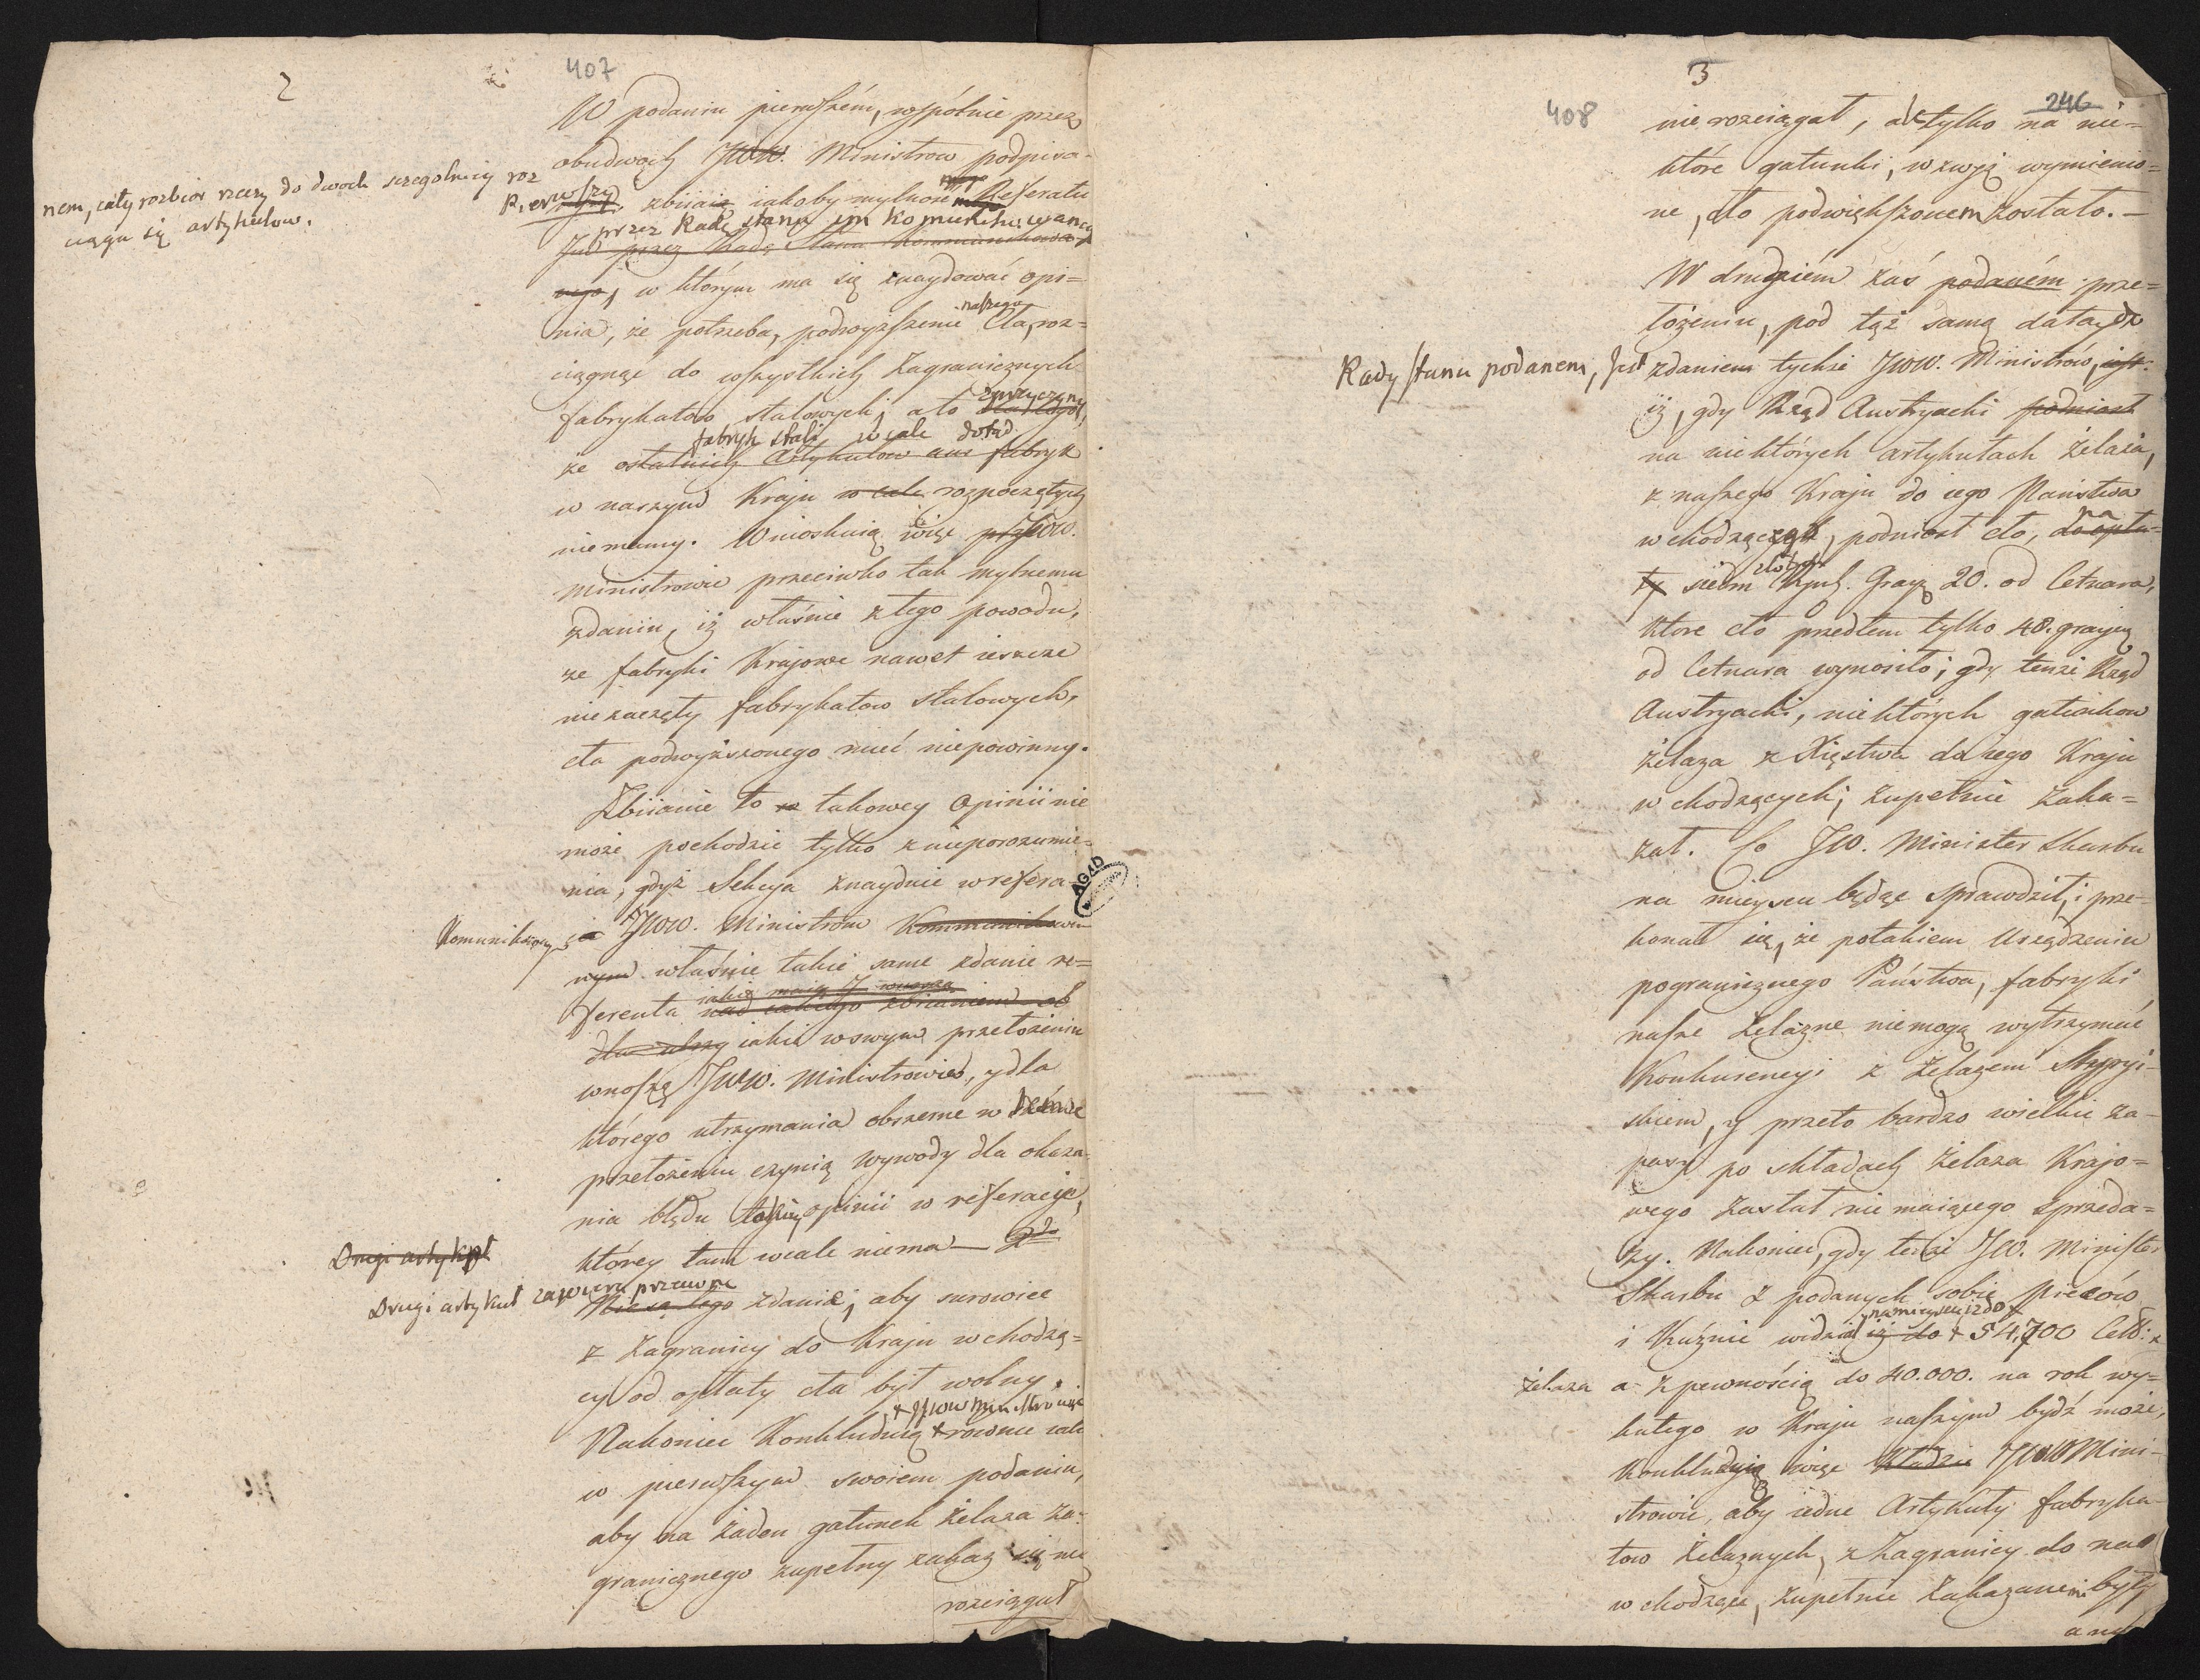 2
407
W podaniu pierwszém, wspólnie przez
obudwoch JWW. Ministrow podpisa-
nem, cały rozbior rzeczy do dwoch szczegolniey roz
ciąga się artykułow.
Pierwszy zbiiaią iakoby mylność Referatu
przez Radę stanu im komunikowanego
Jul przez Radę Stanu Kommunikowa-
nego, w którym ma się znaydować opi=
nia, że potrzeba, podwyższenie naszego Cła, roz=
ciągnąc do wszystkich Zagranicznych
fabrykatow stalowych; a to z przyczyny
fabryk stali wcale dotąd
że ostatnich Artykułow ani fabryk
w naszym Kraju w cale rozpoczętych
nie mamy. Wnioskuią więc JWW.
Ministrowie przeciwko tak mylnemu
zdaniu, iż właśnie z tego powodu,
ze fabryki Krajowe nawet ieszcze
nie zaczęły fabrykatow stalowych,
cła podwyższonego mieć niepowinny.
Zbiianie to takowey Opinii nie
może pochodzić tylko z nieporozumie=
nia, gdyż Sekcya znayduie w refera-
Komunikowanym JWW. Ministrom Kommunikowa-
nym właśnie takie same zdanie re=
ferenta iakie maią y wnoszą
nad iakiego zbiianiem ob
iakie w swym przełożeniu
wnoszą JWW. Ministrowie, y dla
którego utrzymania obszerne w
przełożeniu czynią wywody dla okaza-
nia błędu takiey opinii w referacie,
którey tam wcale niema— 2do
Drugi artykuł
Drugi artykuł zawiera przeciwne
zdanie; aby surowiec
z Zagranicy do Kraju wchodzą=
cy od opłaty cła był wolny.
+ JWW Ministrowie
Nakoniec Konkluduią + rownie iak
w pierwszym swoiem podaniu,
aby na żaden gatunek żelaza za=
granicznego zupełny zakaz się nie
rozciągał
AGAD
3
246
408
nie rozciągał, ale tylko na nie=
które gatunki, wzwyż wymienio=
ne, cło podwiększonem zostało.—
W drugiém zaś podaném prze=
łożeniu, pod tąż samą datą, do
Rady stanu podanem, Jest zdaniem tychże JWW. Ministrów, iest:
iż, gdy Rząd Austryacki podniosł
na niektórych artykułach żelaza,
z naszego Kraju do iego Państwa
wchodzących, podniosł cło, na do opła-
ty siedm złotych Ryńs. Gray. 20. od Cetnara,
ktore cło przedtem tylko 48. graycar
od Cetnara wynosiło; gdy tenże Rząd
Austryacki, niektórych gatunkow
żelaza z Xięstwa do iego Kraju
wchodzących; zupełnie zaka=
zał. Co JW. Minister Skarbu
na mieyscu będąc sprawdził, i prze=
konał się, że po takiem Urządzeniu
pogranicznego Państwa, fabryki
nasze żelazne nie mogą wytrzymać
Konkurencyi z żelazem Styryi-
skiem, y przeto bardzo wielkie za-
pasy po składach żelaza Krajo=
wego zastał nie maiącego sprzeda=
ży. Nakoniec, gdy tenże JW. Minister
Skarbu z podanych sobie Piecow
i Kuźnic widział na mieyscu iż do
iż do + 54,700 Cet:
żelaza a z pewnością do 40.000. na rok wy=
kutego w Kraju naszym bydź może,
Konkluduią więc Kładzie JWW Mini-
strowie, aby iedne Artykuły fabryka-
tow żelaznych, z Zagranicy do nas
wchodzące, zupełnie Zakazanemi były